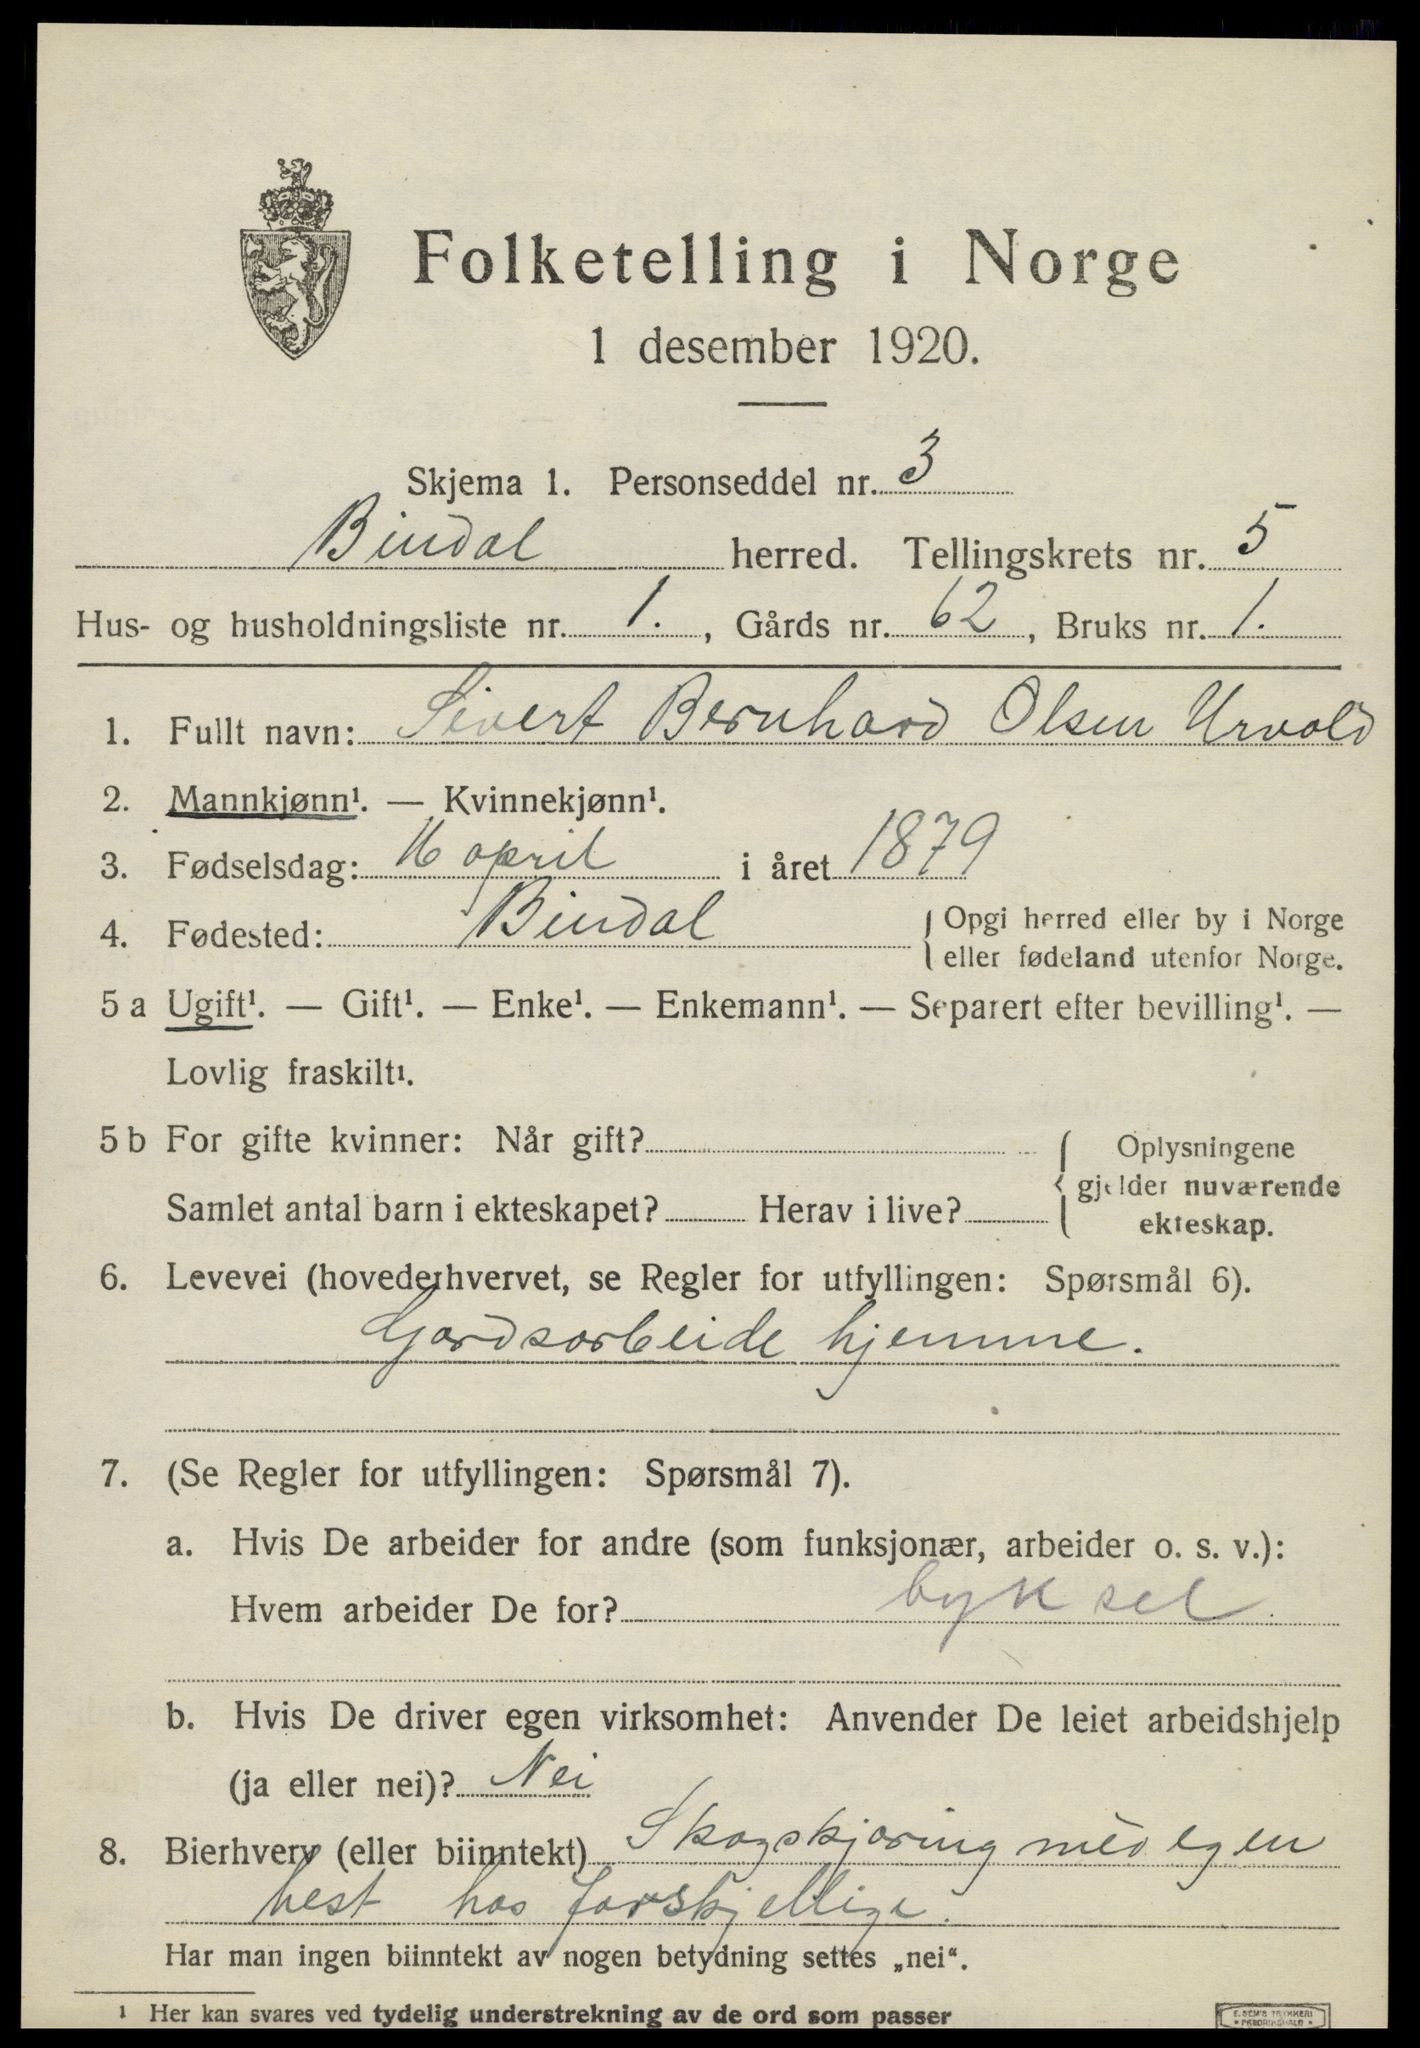 Folketelling i Norge
1 desember 1920.
Skjema 1. Personseddel nr. 3
Bindal herred. Tellingskrets nr. 5
Hus- og husholdningsliste nr. 1. , Gårds nr. 62 , Bruks nr. 1.
1. Fullt navn: Sivert Bernhard Olsen Urvold
2. Mannkjønn¹. — Kvinnekjønn¹.
3. Fødselsdag: 16 april i året 1879
4. Fødested: Bindal { Opgi herred eller by i Norge
eller fødeland utenfor Norge.
5 a Ugift¹. — Gift¹. — Enke¹. — Enkemann¹. — Separert efter bevilling¹. —
Lovlig fraskilt¹.
5 b For gifte kvinner: Når gift? { Oplysningene
gjelder nuværende
Samlet antal barn i ekteskapet? Herav i live? ekteskap.
6. Levevei (hovederhvervet, se Regler for utfyllingen: Spørsmål 6).
Gardsarbeide hjemme.
7. (Se Regler for utfyllingen: Spørsmål 7).
a. Hvis De arbeider for andre (som funksjonær, arbeider o. s. v.):
Hvem arbeider De for? byksel
b. Hvis De driver egen virksomhet: Anvender De leiet arbeidshjelp
(ja eller nei)? Nei
8. Bierhverv (eller biinntekt) Skogskjøring med egen
hest hos forskjellige.
Har man ingen biinntekt av nogen betydning settes „nei“.
¹ Her kan svares ved tydelig understrekning av de ord som passer
E. SEM'S TRYKKERI
* FREDRIKSHALD *